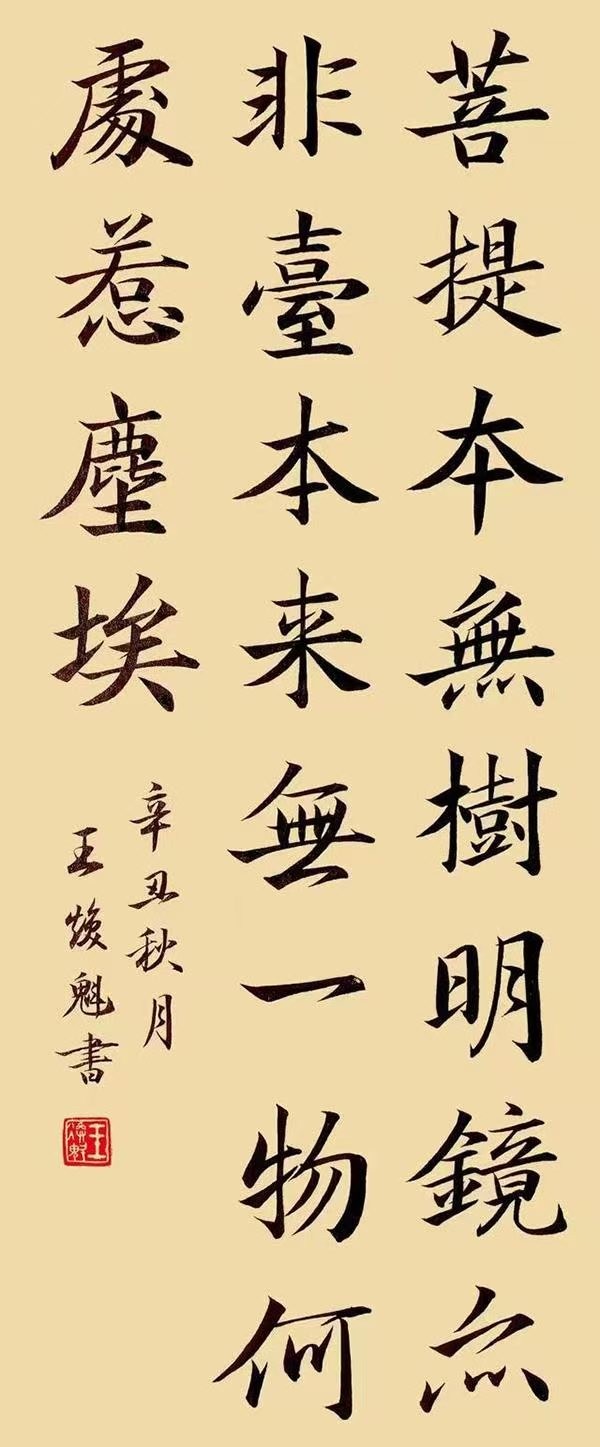 菩提本無樹明鏡亦
非臺本来無一物何
處惹塵埃
辛丑秋月
王焕魁書